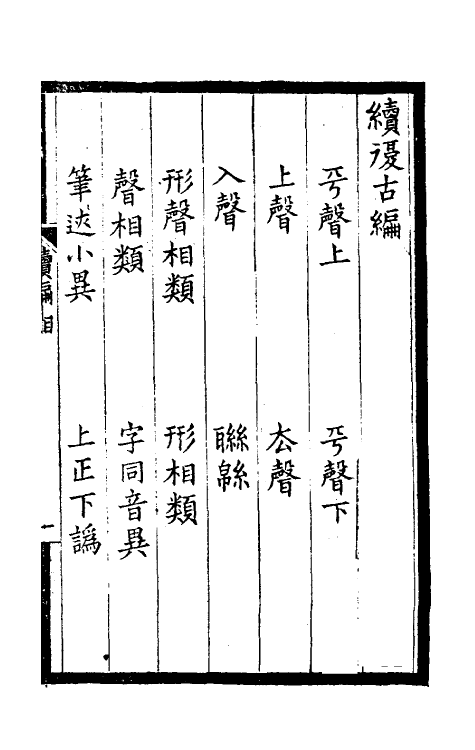 續復古編
平聲上 平聲下
上聲 去聲
入聲 聯緜
形聲相類 形相類
聲相類 字同音異
筆迹小異 上正下譌
續編目
一